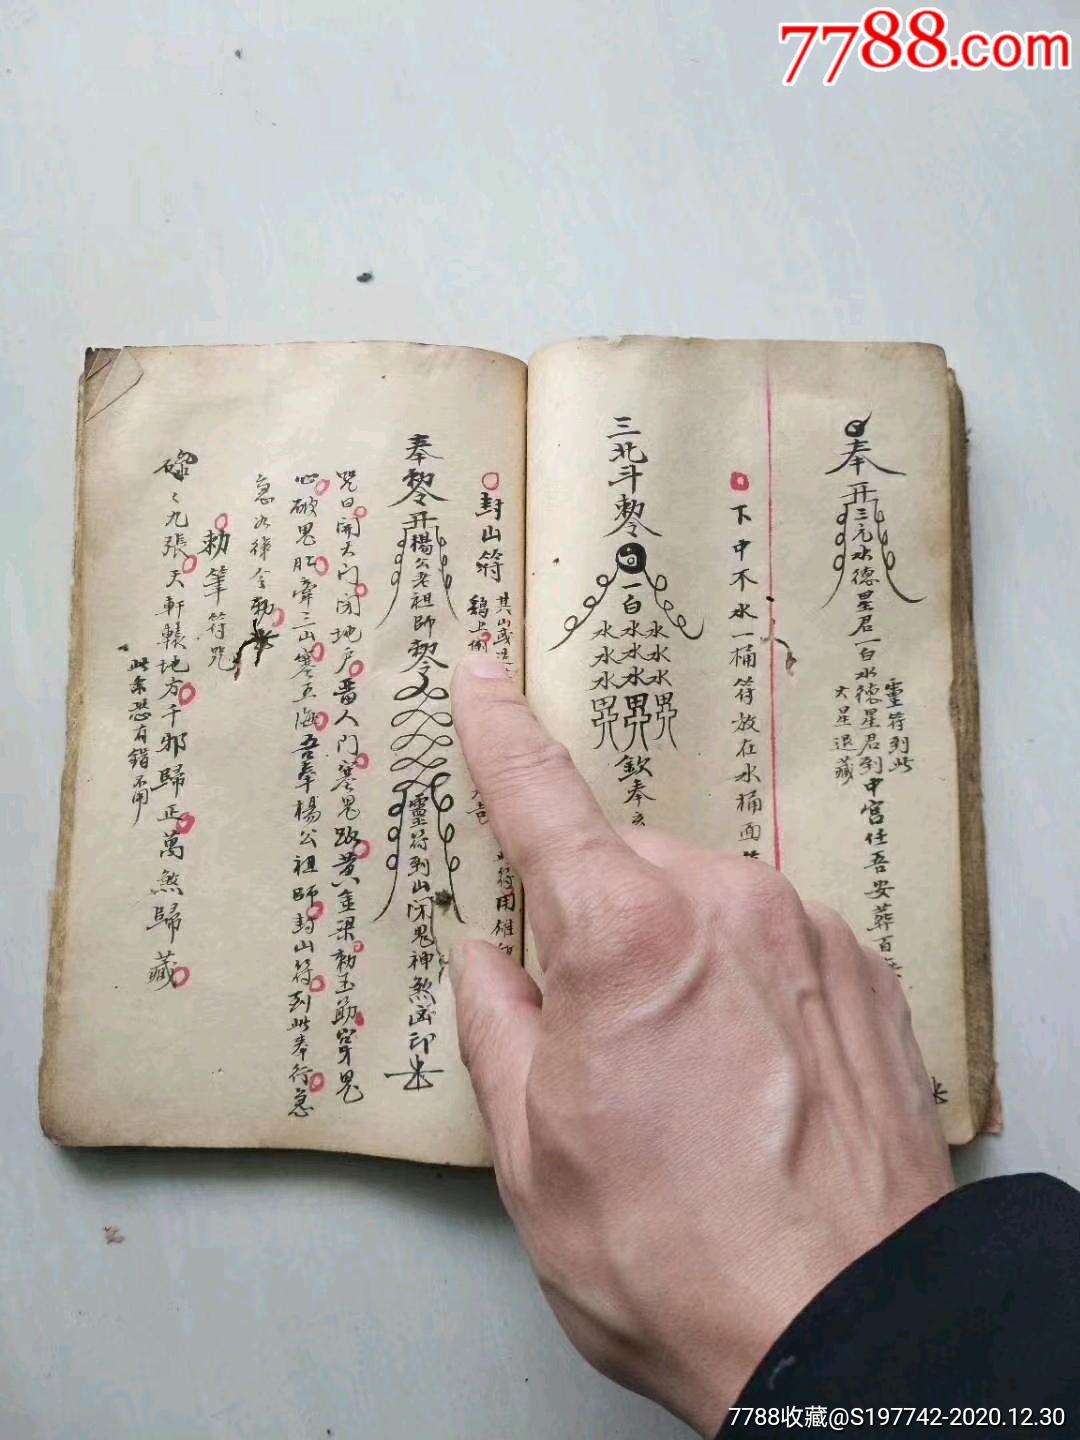 7788.com
奉开三元水德星君一白水德星君到中宮任吾安葬百
靈符到此
大星退藏
下中不水一桶符放在水桶面
三北斗勅令
一白
水水水
水水水
水水水
欽奉
封山符
其山或
用雄
奉勅令开楊公老祖師勅令
靈符到山闭鬼神煞
印
咒曰開天门闭地户
人门塞鬼路黄金梁勅玉筯穿鬼
心破鬼肚
三山塞五海吾奉楊公祖師封山符到此奉行急
急如律令勅
勅筆符咒
九張天軒轅地方千邪歸正萬煞歸藏
此条恐有錯不用
7788收藏@S197742-2020.12.30